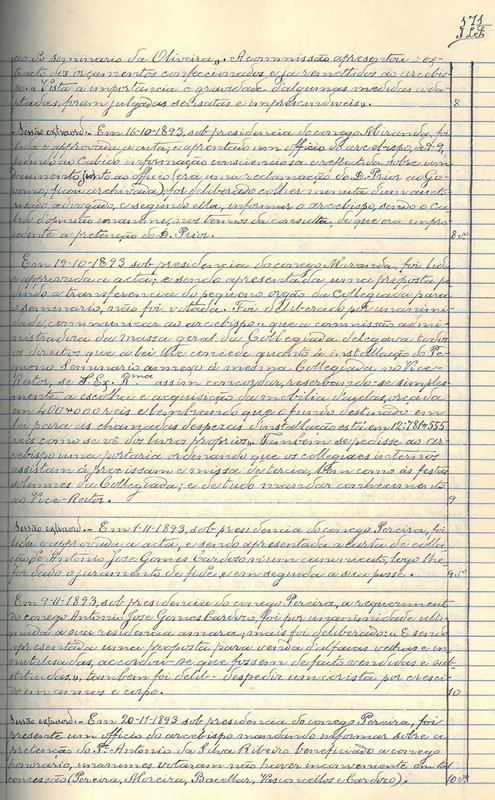 171
ção do seminario da Oliveira". A commissão apresentou o ex-
tracto dos orçamentos confeccionados e já remettidos ao arcebis-
po. "Vista a importancia e gravidade d'algumas medidas ado-
ptadas, foram julgadas sensatas e imprescindiveis". 8
Sessão extraord. - Em 16-10-1893, sob presidencia do conego Miranda, foi
lida e approvada a acta; e apresentado um officio do arcebispo, de 9-9,
pedindo ao Cabido informação consciensiosa e reflectida sobre um
documento junto ao officio (era uma reclamação do D. Prior ao Go-
verno, ficou archivada), foi deliberado colher a minuta d'um acre-
ditado advogado, e segundo ella, informar o arcebispo, sendo o Ca-
bido d'opinião unanime, nos termos da consulta, de que era impro-
cedente a pretenção do D. Prior. 8 vº
Em 19-10-1893 sob presidencia do conego Miranda, foi lida
e approvada a acta; e sendo apresentada uma proposta pe-
dindo a transferencia do pequeno orgão da Collegiada para
o seminario, não foi votada. Foi deliberado por unanimi-
dade, communicar ao arcebispo: que a commissão admi-
nistradora da massa geral da Collegiada delegava todos
os direitos que a lei lhe concede quanto á installação do Pe-
queno Seminario annexo á mesma Collegiada no Vice-
Reitor, se S. Ex.ª Rma assim concordar, reservando-se simples-
mente a escolha e acquisição da mobilia d'aulas, orçada
em 400$000 reis e lembrando que o fundo destinado em
lei para as chamadas despezas d'installação está em 12:781$555
reis como se vê dos livros proprios". Tambem se pedisse ao ar-
cebispo uma portaria ordenando que os collegiaes internos
assistam á procissam e missa de tercia, bem como ás festas
solemnes da Collegiada; e de tudo mandar conhecimento
ao Vice-Reitor. 9
Sessão extraord. - Em 1-11-1893, sob presidencia do conego Pereira, foi
lida e approvada a acta, e sendo apresentada a carta de colla-
ção de Antonio José Gomes Cardoso n'um canonicato, logo lhe
foi dado o juramento de fide, e em seguida a sua posse. 9 vº
Em 9-11-1893, sob presidencia do conego Pereira, a requerimento
do conego Antonio José Gomes Cardoso, foi por unanimidade ulti-
mada a sua residencia amara, mais foi deliberado: "E sendo
apresentada uma proposta para venda d'alfaias velhas e in-
utilisadas, accordou-se que fossem de facto vendidas e sub-
stituidas", tambem foi delib. despedir um corista por cresci-
do em annos e corpo. 10
Sessão extraord. - Em 20-11-1893, sob presidencia do conego Pereira, foi
presente um officio do arcebispo mandando informar sobre a
pretenção do Pe. Antonio da Silva Ribeiro beneficiado a conego
honorario, unanimes votaram não haver inconveniente em tal
concessão (Pereira, Moreira, Bacellar, Vasconcellos e Cardozo). 10 vº